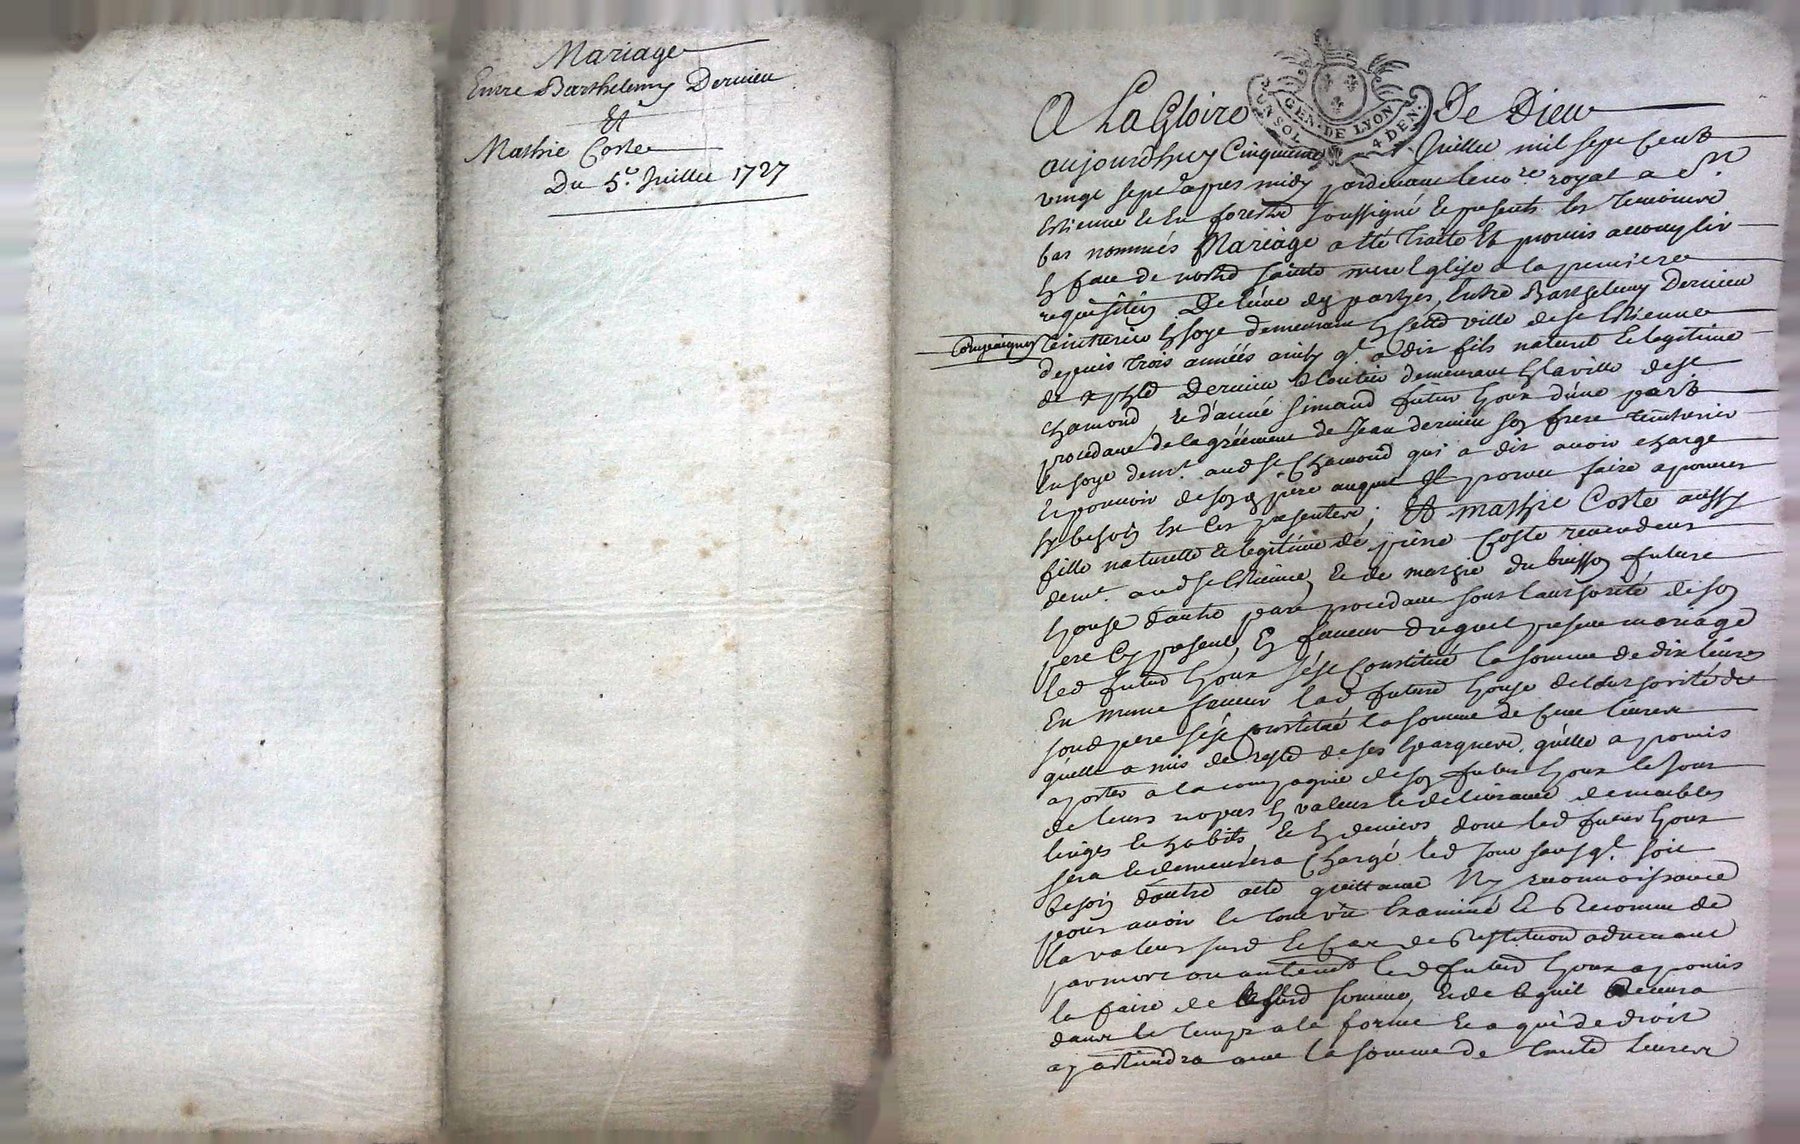 Mariage
Entre Barthelemy Dervieu
Et
Mathie Coste
Du 5e. Juillet 1727
GEN. DE LYON
UN SOL 4 DEN.
A La Gloire De Dieu
aujourdhuy Cinquieme Juillet mil sept Cent
vingt sept apres midy pardevant le no.re royal a St.
Estienne en forestz soussigné et presents les temoins
bas nommés Mariage a été traité Et promis accomplir
en face de nostre sainte mere Eglise a la premiere
requisition De l'une des parties, Entre Barthelemy Dervieu
compaignon
teinturier en soye demeurant en cette ville de st Estienne
depuis trois années ainsy ql. a dit fils naturel et legitime
de Dervieu demeurant en la ville de st
chamond, et d'anne Simand futur Epoux d'une part
procedant de lagréement de Jean dervieu son frere teinturier
en soye demt. aud st Chamond qui a dit avoir charge
et pouvoir de son pere auquel Il promet faire aprouver
sy besoin est ces presentes; Et Mathie Coste aussy
fille naturelle et legitime de pierre Coste revendeur
demt. aud st Estienne, et de marie du buisson future
Epouse d'autre part procedant sous l'authorité de son
pere Cy present, En faveur duquel present mariage
led futur Epoux s'est Constitué la somme de dix livres
En meme faveur lad future Epouse de l'authorité de
sond pere s'est Constitué la somme de Cent livres
quelle a mis de reste de ses Epargnes, qu'elle a promis
aporter a la compagnie de son futur Epoux le jour
de leurs nopces en valeur et delivrance de meubles
linges et habits et en deniers dont led futur Epoux
sera et demeurera chargé led jour sans ql. soit
besoin d'autre acte quittance Ny reconnoissance
pour avoir le tout vû Examiné et Reconnu de
la valeur susd Et le Cas de Restitution advenant
par mort ou autrement led futur Epoux a promis
la faire de lad somme, et de ce quil Recevra
dans le temps a la forme et a qui de droit
apartiendra avec la somme de trente livres